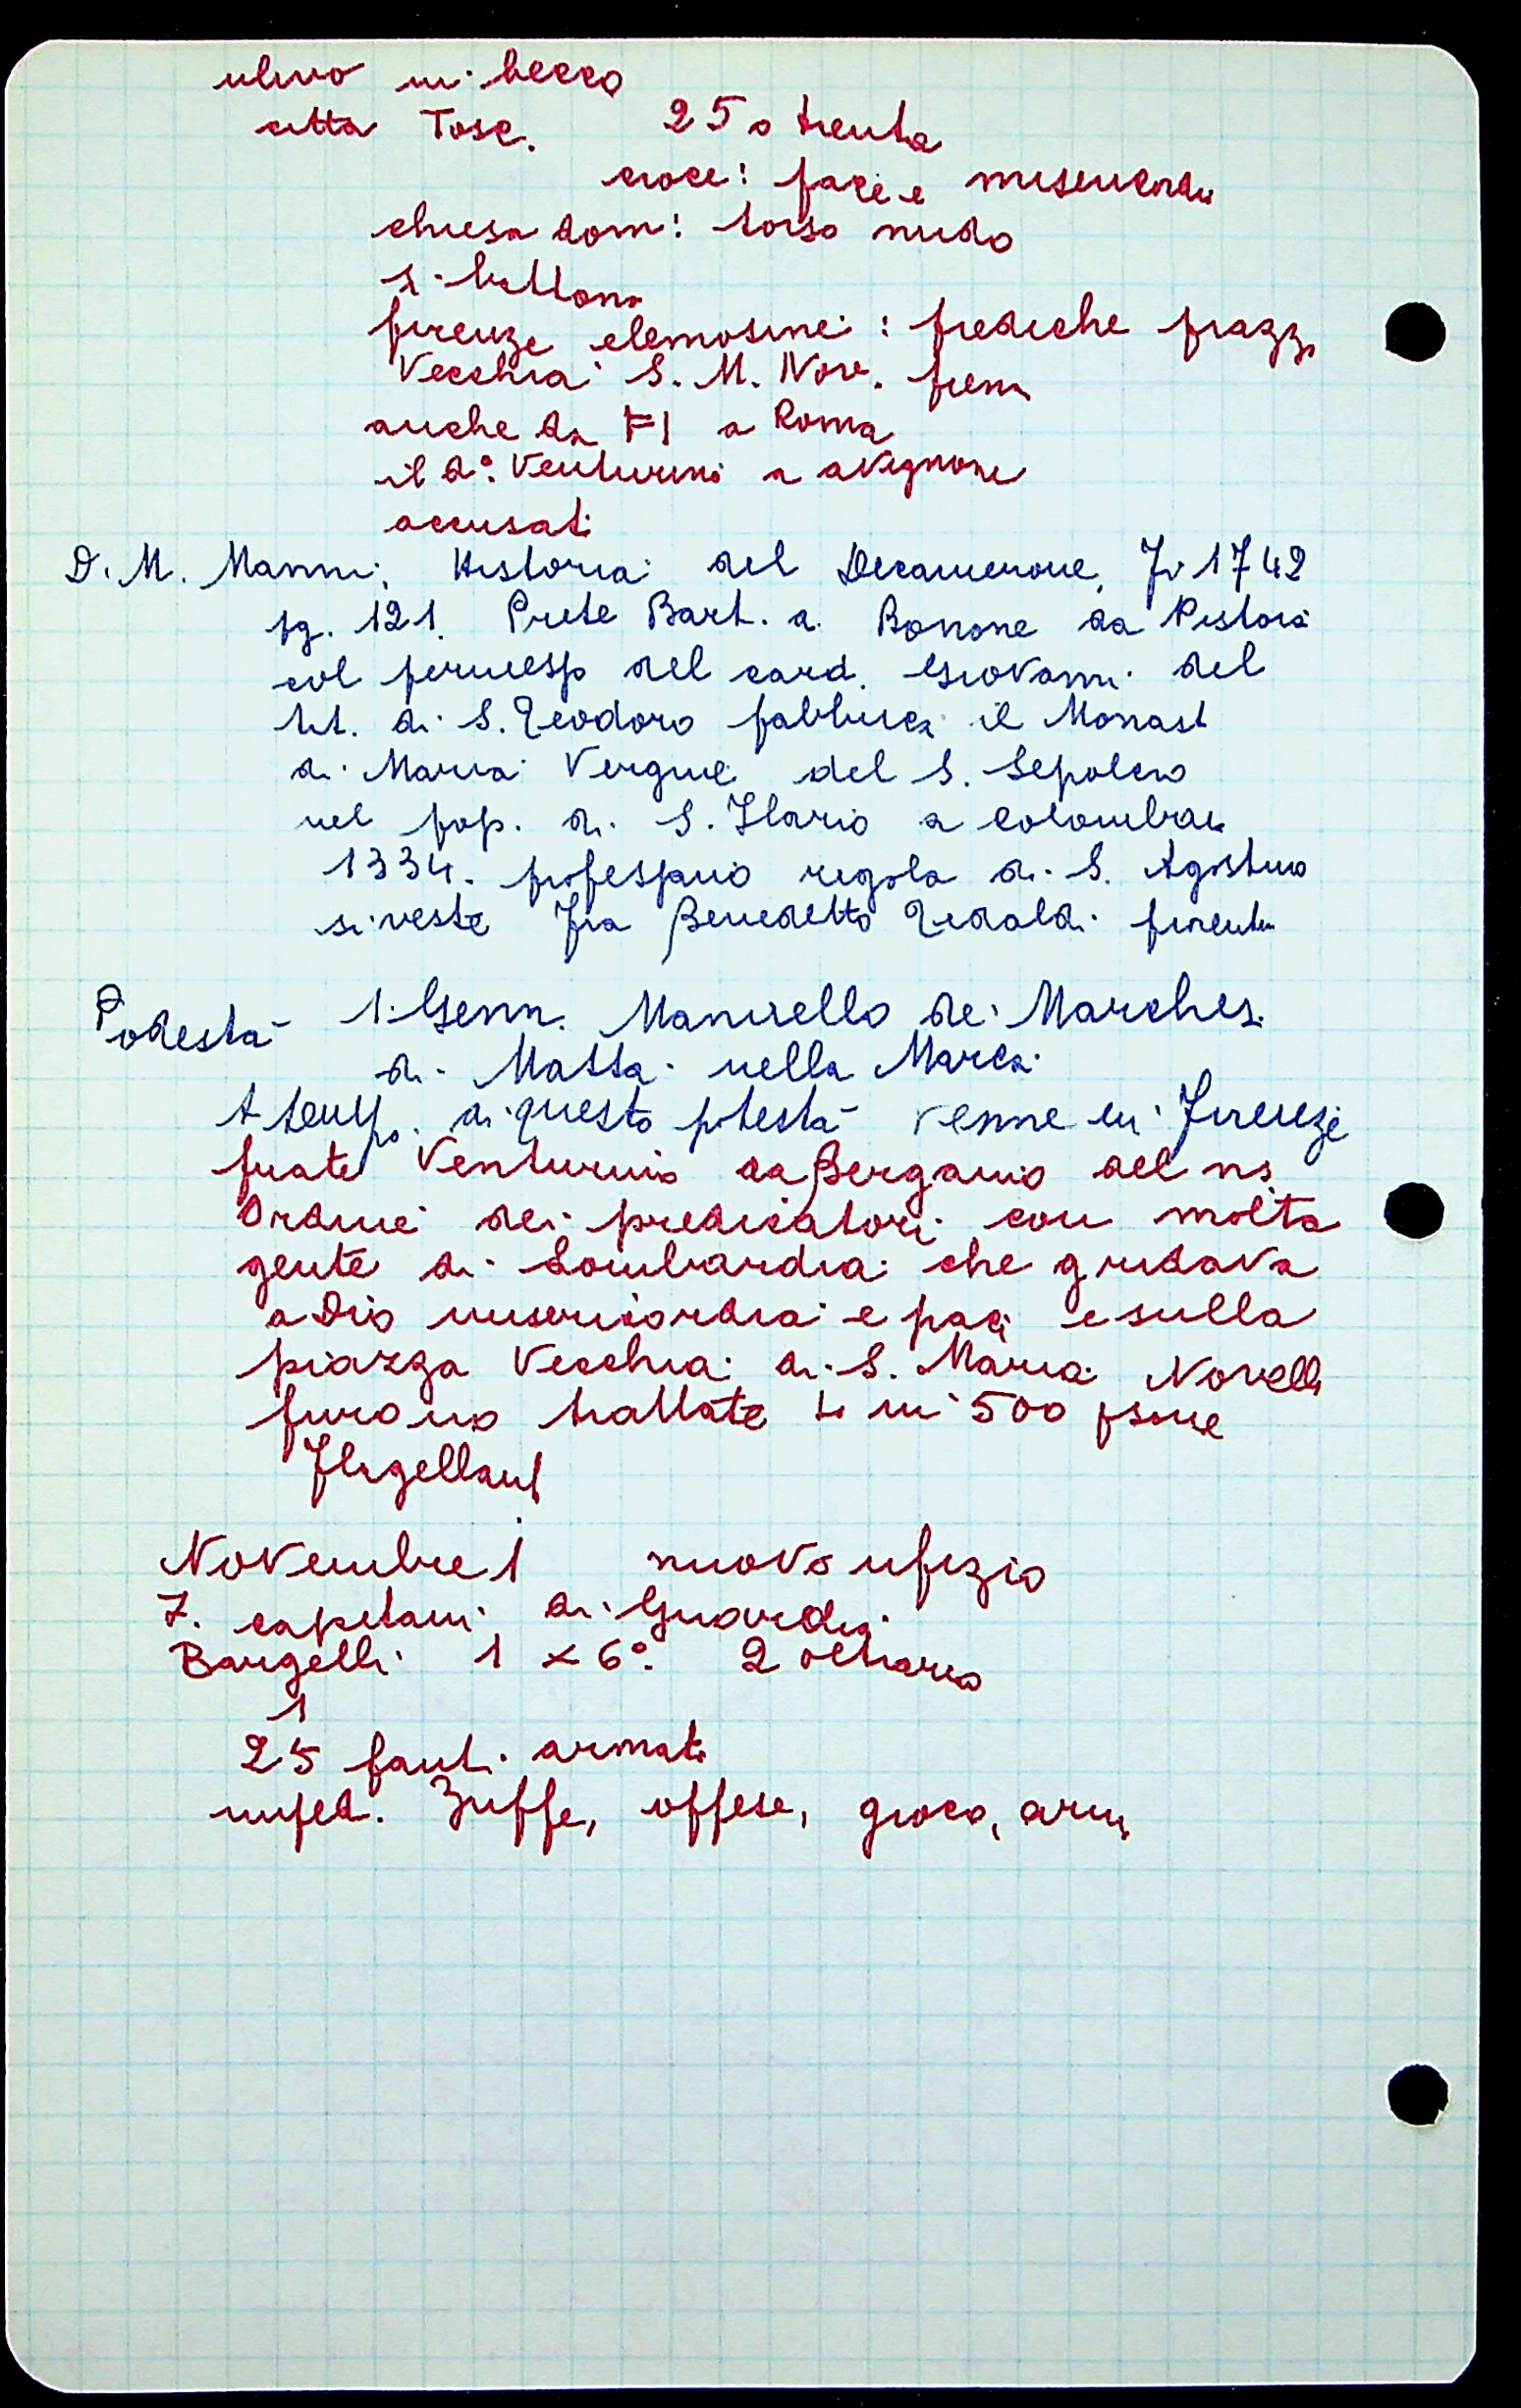 ulivo in becco
città Tosc. 25 o trenta
croce: pace e misericordia
chiesa dom: torso nudo
si battono
firenze elemosine: prediche piazza
Vecchia S. M. Nov.
anche da FI a Roma
il d° Venturino a avignone
accusati
D. M. Manni, Historia del Decamerone, Fi 1742
pg. 121. Prete Bart. a. Bonone da Pistoia
col permesso del card. Giovanni del
tit. di S. Teodoro fabbrica il Monast
di Maria Vergine del S. Sepolcro
nel pop. di S. Ilario a Colombaia
1334. professano regola di S. Agostino
si veste Fra Benedetto Tedaldi fiorentin
Podestà 1. Genn. Maninello dei Marches.
di Massa nella Marca
A tempo di questo potestà venne in Firenze
frate Venturino da Bergamo del ns
Ordine dei predicatori con molta
gente di Lombardia che gridava
a Dio misericordia e pace e sulla
piazza Vecchia di S. Maria Novella
furono trattate in 500 psone
Flagellant
Novembre 1 nuovo ufizio
7. capitani di Guardia
Bargelli 1 x 6° 2 oltrarno
1
25 fanti armati
imped. Zuffe, offese, gioco, armi